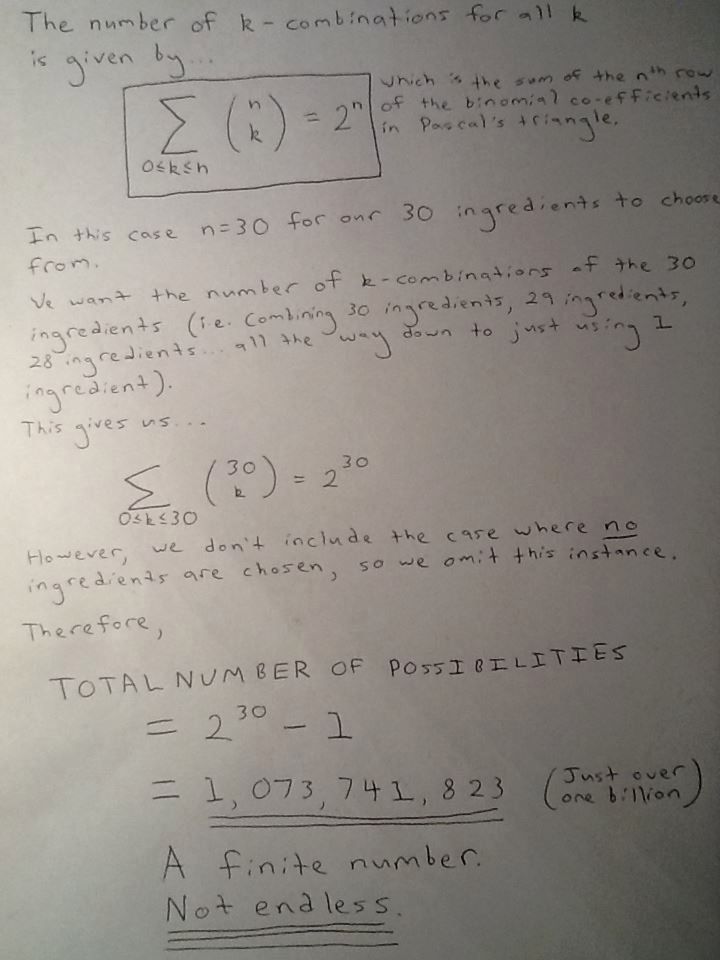 The number of k-combinations for all k
is given by...
∑ (n k) = 2^n
0≤k≤n
which is the sum of the nth row
of the binomial co-efficients
in Pascal's triangle.
In this case n=30 for our 30 ingredients to choose
from.
We want the number of k-combinations of the 30
ingredients (i.e. Combining 30 ingredients, 29 ingredients,
28 ingredients... all the way down to just using 1
ingredient).
This gives us...
∑ (30 k) = 2^30
0≤k≤30
However, we don't include the case where no
ingredients are chosen, so we omit this instance.
Therefore,
TOTAL NUMBER OF POSSIBILITIES
= 2^30 - 1
= 1,073,741,823 (Just over
one billion)
A finite number.
Not endless.